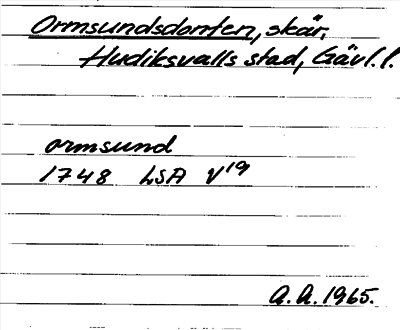 Ormsundsdomten, skär,
Hudiksvalls stad, Gävl.l.
ormsund
1748 LSA V19
A.A. 1965.